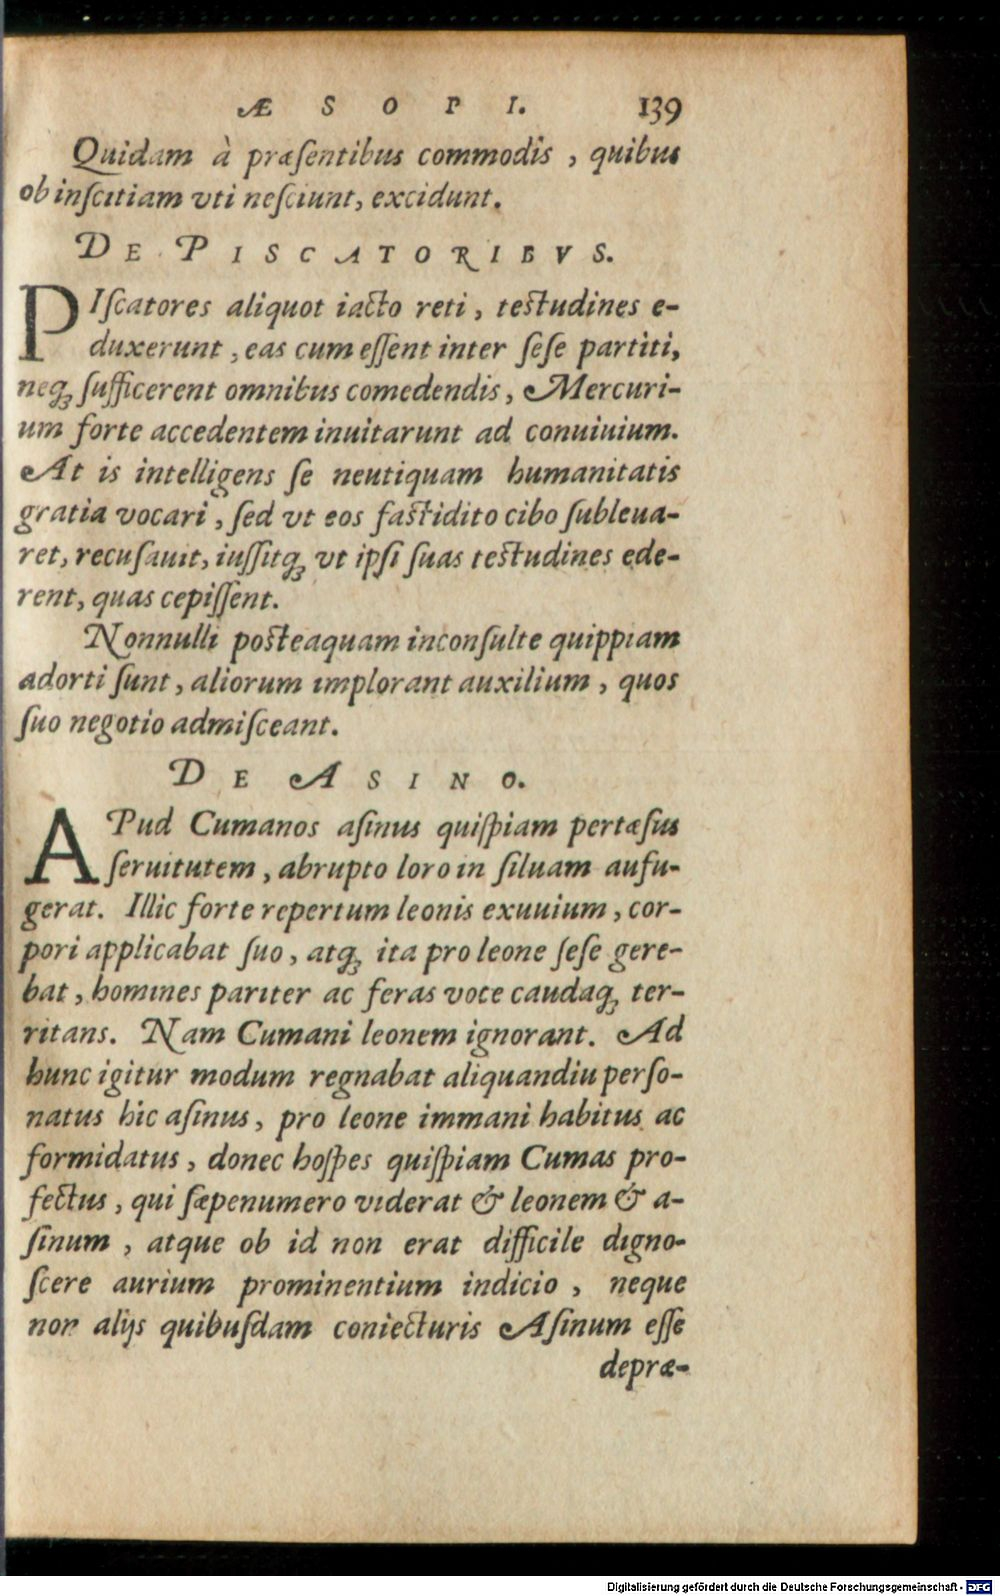 ÆSOPI. 139
Quidam à præſentibus commodis, quibus
ob inſcitiam vti neſciunt, excidunt.
DE PISCATORIBVS.
PIſcatores aliquot iacto reti, teſtudines e-
duxerunt, eas cum eſſent inter ſeſe partiti,
neq; ſufficerent omnibus comedendis, Mercuri-
um forte accedentem inuitarunt ad conuiuium.
At is intelligens ſe neutiquam humanitatis
gratia vocari, ſed vt eos faſtidito cibo ſubleua-
ret, recuſauit, iuſſitq; vt ipſi ſuas teſtudines ede-
rent, quas cepiſſent.
Nonnulli poſteaquam inconſulte quippiam
adorti ſunt, aliorum implorant auxilium, quos
ſuo negotio admiſceant.
DE ASINO.
APud Cumanos aſinus quiſpiam pertæſus
ſeruitutem, abrupto loro in ſiluam aufu-
gerat. Illic forte repertum leonis exuuium, cor-
pori applicabat ſuo, atq; ita pro leone ſeſe gere-
bat, homines pariter ac feras voce caudaq; ter-
ritans. Nam Cumani leonem ignorant. Ad
hunc igitur modum regnabat aliquandiu perſo-
natus hic aſinus, pro leone immani habitus ac
formidatus, donec hoſpes quiſpiam Cumas pro-
fectus, qui ſæpenumero viderat & leonem & a-
ſinum, atque ob id non erat difficile digno-
ſcere aurium prominentium indicio, neque
non alijs quibuſdam coniecturis Aſinum eſſe
depræ-
Digitalisierung gefördert durch die Deutsche Forschungsgemeinschaft - DFG